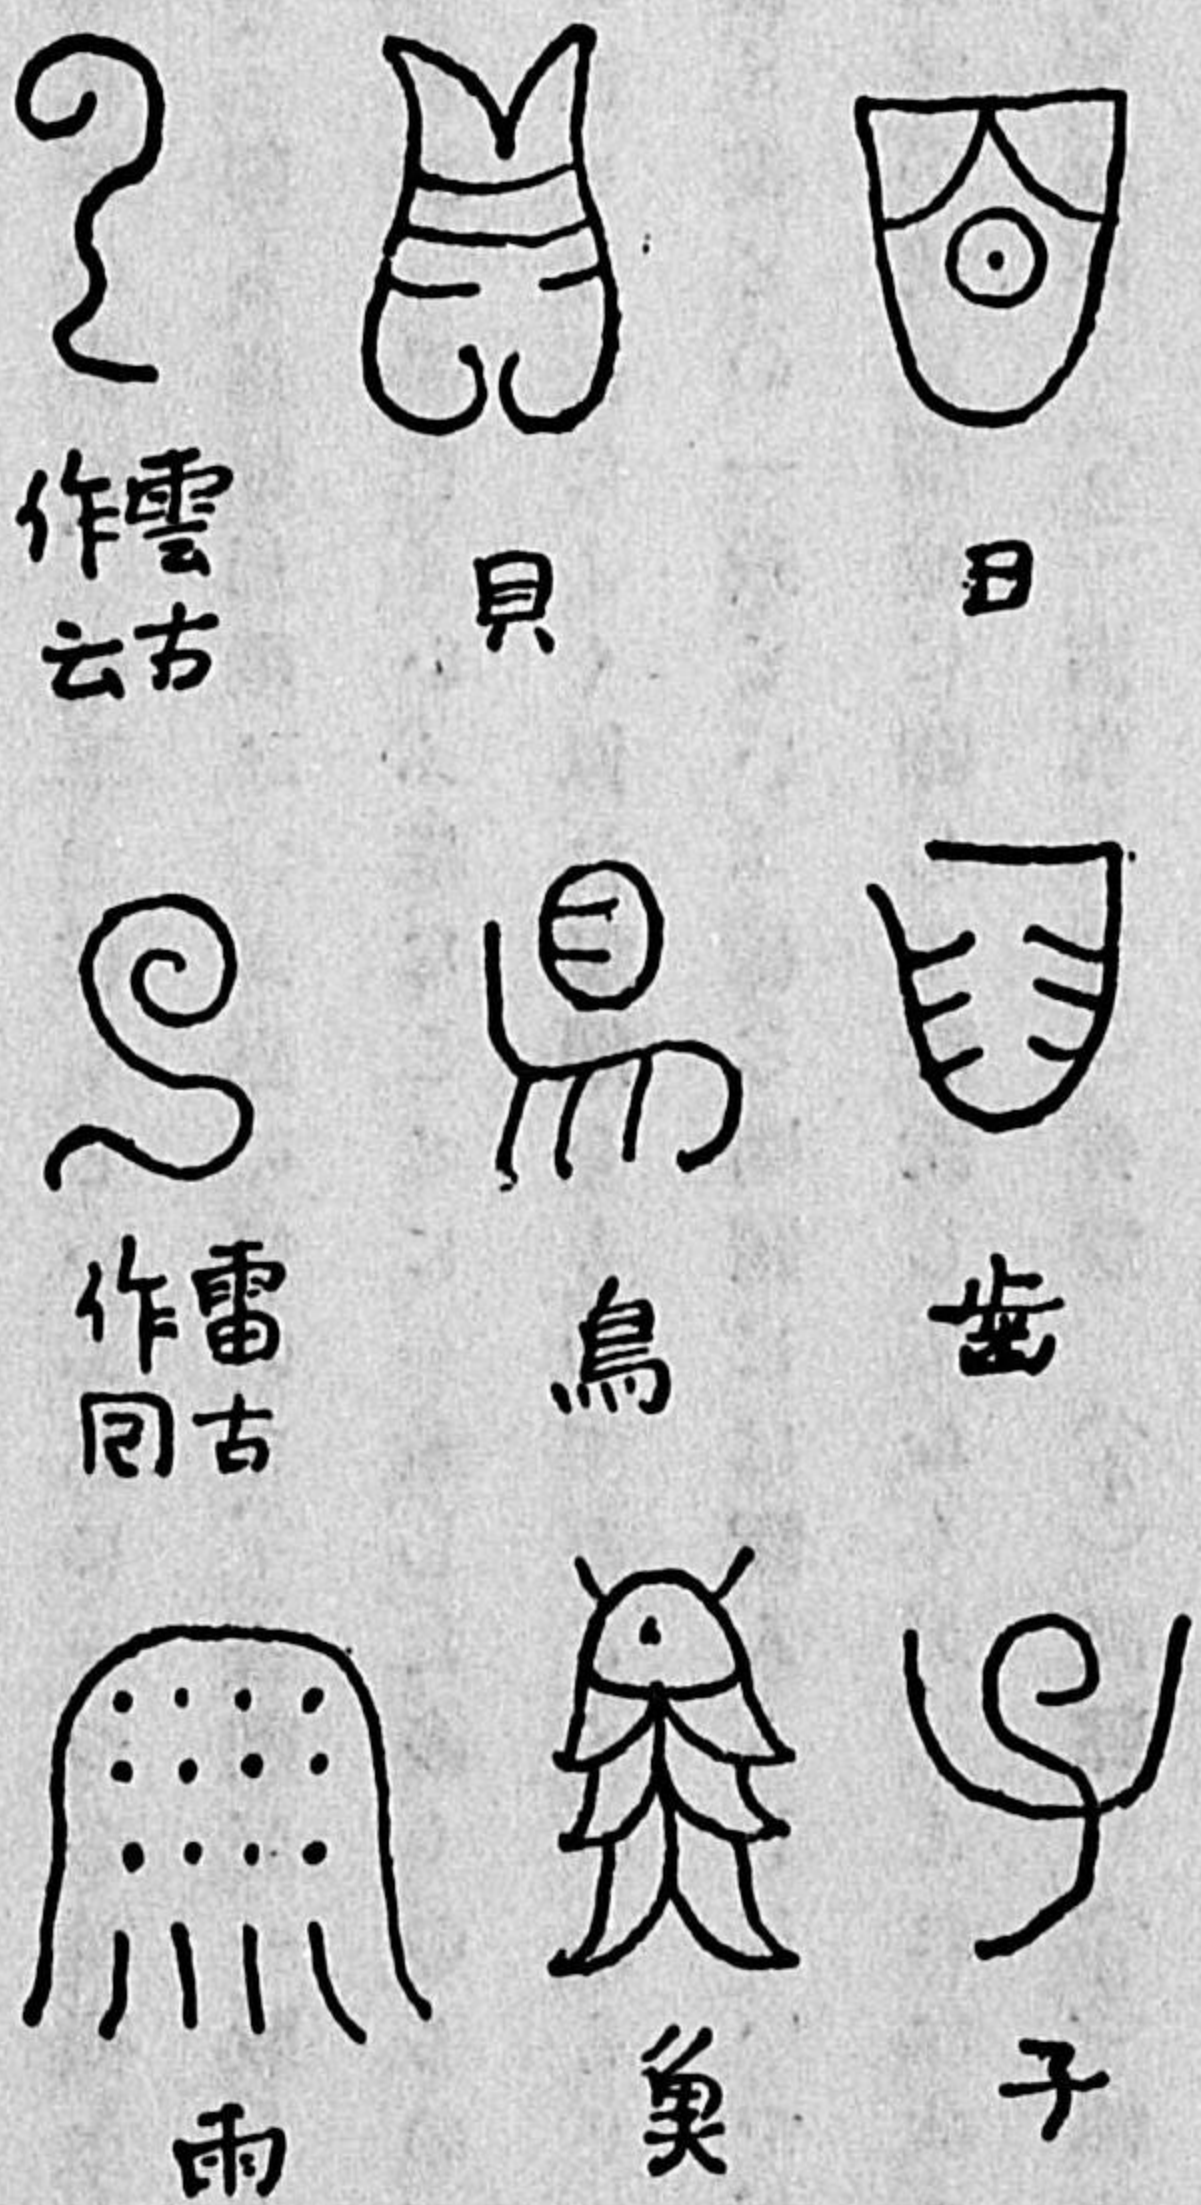 日
齒
子
貝
鳥
魚
雲古
作云
雷古
作囘
雨